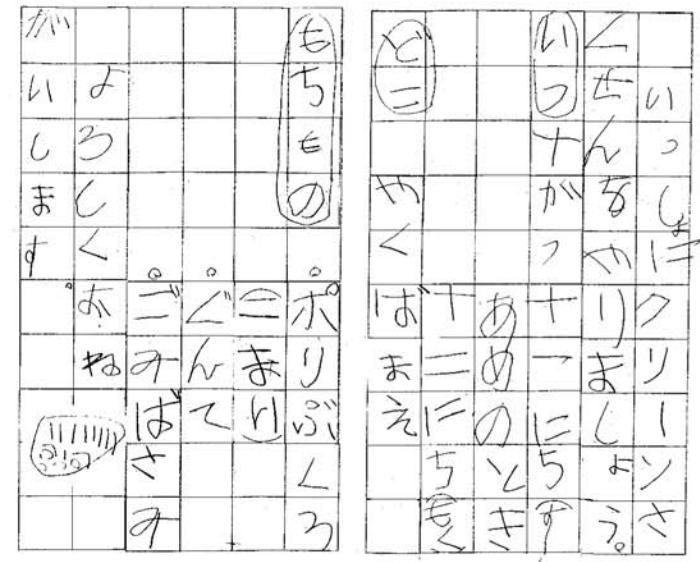 いっしょにクリーンさ
くせんをやりましょう。
いつ 十がつ十一にち(す)
あめのとき
十二にち(もく)
どこ やくばまえ
もちもの 。ポリぶくろ
(二まい)
。ぐんて
。ごみばさみ
よろしくおね
がいします。